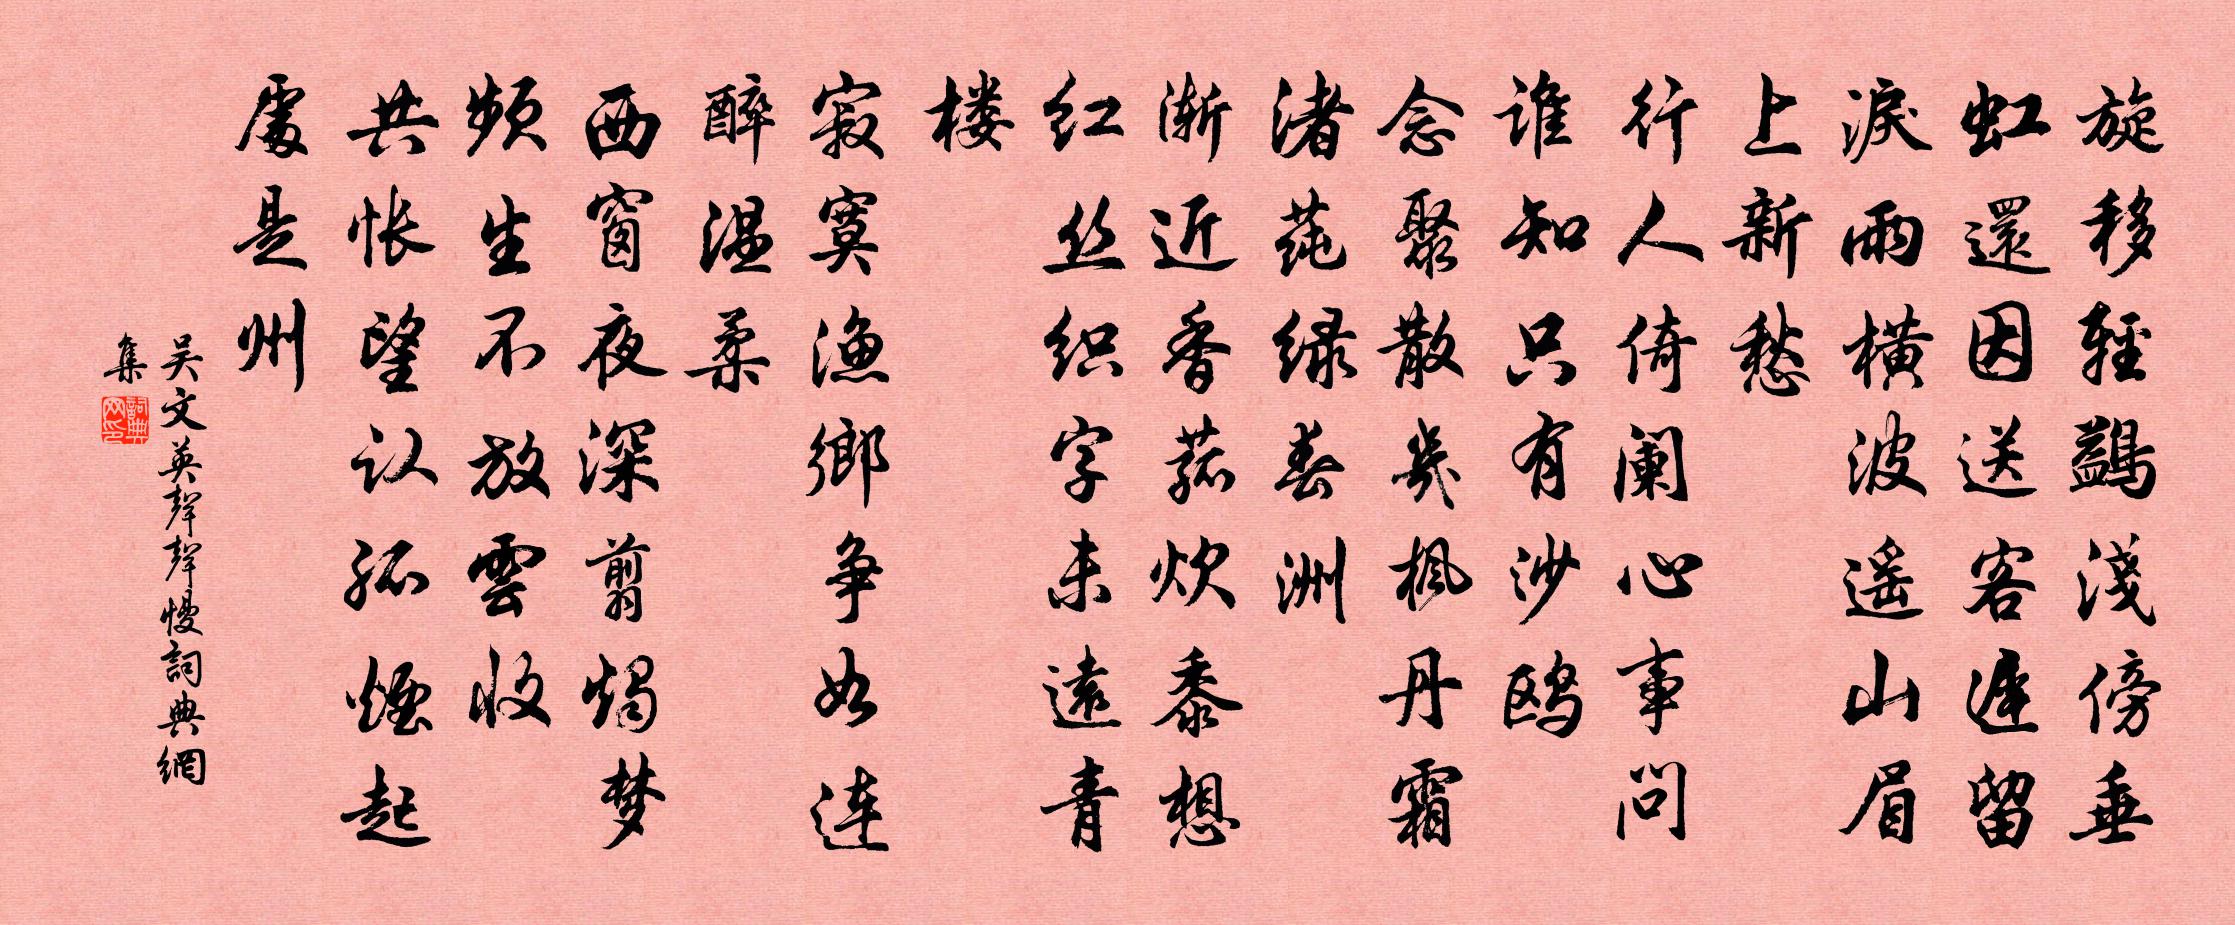 旋移輕鷁淺傍垂
虹還因送客遲留
淚雨橫波遥山眉
上新愁
行人倚阑心事問
谁知只有沙鸥
念聚散幾枫丹霜
渚莼绿春洲
渐近香菰炊黍想
红丝织字未遠青
楼
寂寞渔鄉争如连
醉温柔
西窗夜深剪烛梦
频生不放雲收
共怅望认孤烟起
處是州
吴文英聲聲慢詞典網
集
詞典网印